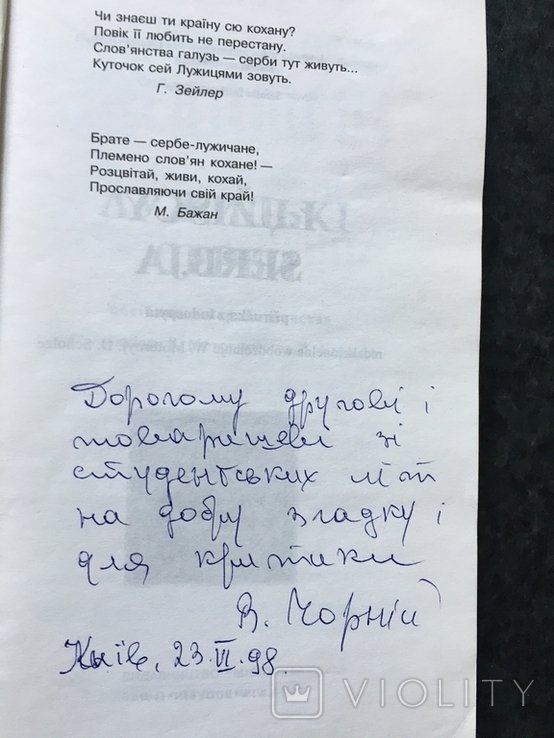 Чи знаєш ти країну сю кохану?
Повік її любить не перестану.
Слов'янства галузь — серби тут живуть...
Куточок сей Лужицями зовуть.
Г. Зейлер
Брате — сербе-лужичане,
Племено слов'ян кохане! —
Розцвітай, живи, кохай,
Прославляючи свій край!
М. Бажан
SERBIJA
Дорогому другові і
товаришеві зі
студентських літ
на добру згадку і
для критики
В. Чорній
Київ, 23.VI.98.
VIOLITY